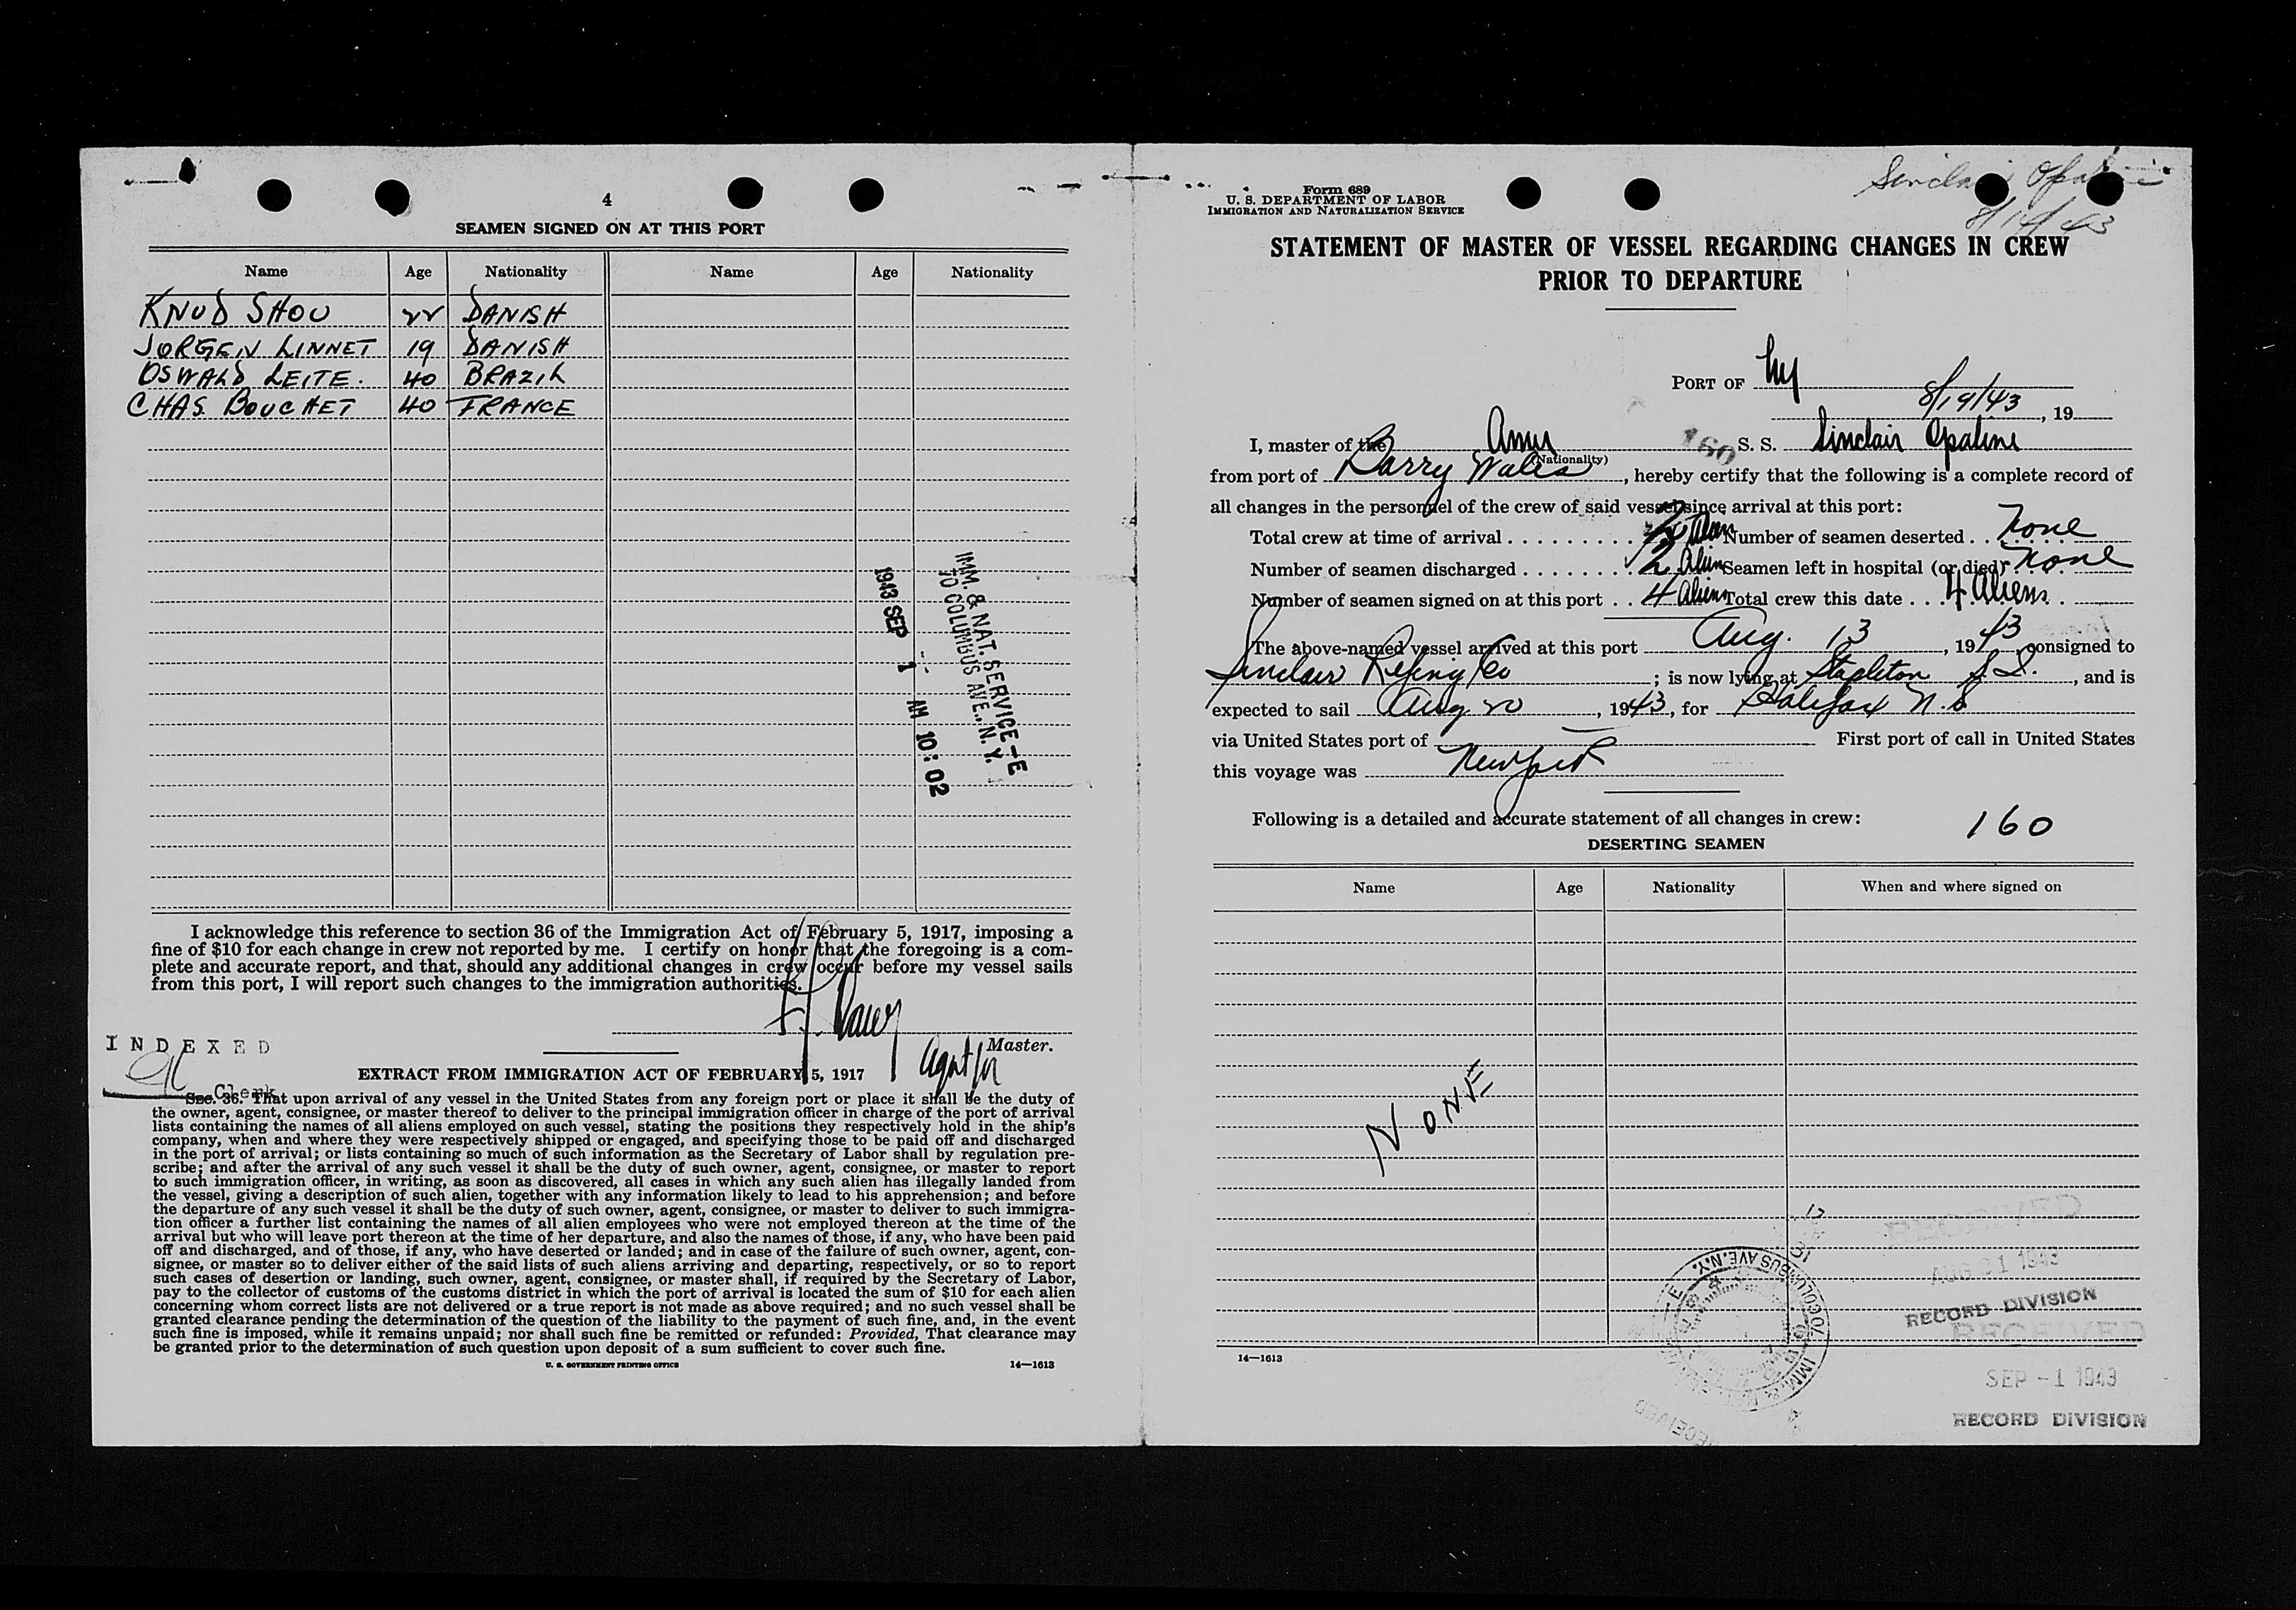 4
SEAMEN SIGNED ON AT THIS PORT
Name Age Nationality Name Age Nationality
KNUD SHOU 22 DANISH
JORGEN LINNET 19 DANISH
OSWALD LEITE. 40 BRAZIL
CHAS. BOUCHET 40 FRANCE
IMM. & NAT. SERVICE—E
70 COLUMBUS AVE., N.Y.
1943 SEP 1 AM 10:02
I acknowledge this reference to section 36 of the Immigration Act of February 5, 1917, imposing a
fine of $10 for each change in crew not reported by me. I certify on honor that the foregoing is a com-
plete and accurate report, and that, should any additional changes in crew occur before my vessel sails
from this port, I will report such changes to the immigration authorities.
Agent for Master.
INDEXED
Clerk
EXTRACT FROM IMMIGRATION ACT OF FEBRUARY 5, 1917
Sec. 36. That upon arrival of any vessel in the United States from any foreign port or place it shall be the duty of
the owner, agent, consignee, or master thereof to deliver to the principal immigration officer in charge of the port of arrival
lists containing the names of all aliens employed on such vessel, stating the positions they respectively hold in the ship's
company, when and where they were respectively shipped or engaged, and specifying those to be paid off and discharged
in the port of arrival; or lists containing so much of such information as the Secretary of Labor shall by regulation pre-
scribe; and after the arrival of any such vessel it shall be the duty of such owner, agent, consignee, or master to report
to such immigration officer, in writing, as soon as discovered, all cases in which any such alien has illegally landed from
the vessel, giving a description of such alien, together with any information likely to lead to his apprehension; and before
the departure of any such vessel it shall be the duty of such owner, agent, consignee, or master to deliver to such immigra-
tion officer a further list containing the names of all alien employees who were not employed thereon at the time of the
arrival but who will leave port thereon at the time of her departure, and also the names of those, if any, who have been paid
off and discharged, and of those, if any, who have deserted or landed; and in case of the failure of such owner, agent, con-
signee, or master so to deliver either of the said lists of such aliens arriving and departing, respectively, or so to report
such cases of desertion or landing, such owner, agent, consignee, or master shall, if required by the Secretary of Labor,
pay to the collector of customs of the customs district in which the port of arrival is located the sum of $10 for each alien
concerning whom correct lists are not delivered or a true report is not made as above required; and no such vessel shall be
granted clearance pending the determination of the question of the liability to the payment of such fine, and, in the event
such fine is imposed, while it remains unpaid; nor shall such fine be remitted or refunded: Provided, That clearance may
be granted prior to the determination of such question upon deposit of a sum sufficient to cover such fine.
U. S. GOVERNMENT PRINTING OFFICE 14—1613
Form 689
U. S. DEPARTMENT OF LABOR
IMMIGRATION AND NATURALIZATION SERVICE
Sinclair Opaline
STATEMENT OF MASTER OF VESSEL REGARDING CHANGES IN CREW
PRIOR TO DEPARTURE
PORT OF NY
8/19/43, 19
I, master of the Amer 160 S. S. Sinclair Opaline
(Nationality)
from port of Barry Wales, hereby certify that the following is a complete record of
all changes in the personnel of the crew of said vessel since arrival at this port:
Total crew at time of arrival Alien Number of seamen deserted None
Number of seamen discharged 2 Alien Seamen left in hospital (or died) None
Number of seamen signed on at this port 4 Aliens Total crew this date 4 Aliens
The above-named vessel arrived at this port Aug. 13, 1943, consigned to
Sinclair Refing Co; is now lying at Stapleton S.I., and is
expected to sail Aug 20, 1943, for Halifax N.S
via United States port of First port of call in United States
this voyage was New York
Following is a detailed and accurate statement of all changes in crew: 160
DESERTING SEAMEN
Name Age Nationality When and where signed on
NONE
RECEIVED
AUG 21 1943
RECORD DIVISION
RECEIVED
SEP -1 1943
RECORD DIVISION
14—1613